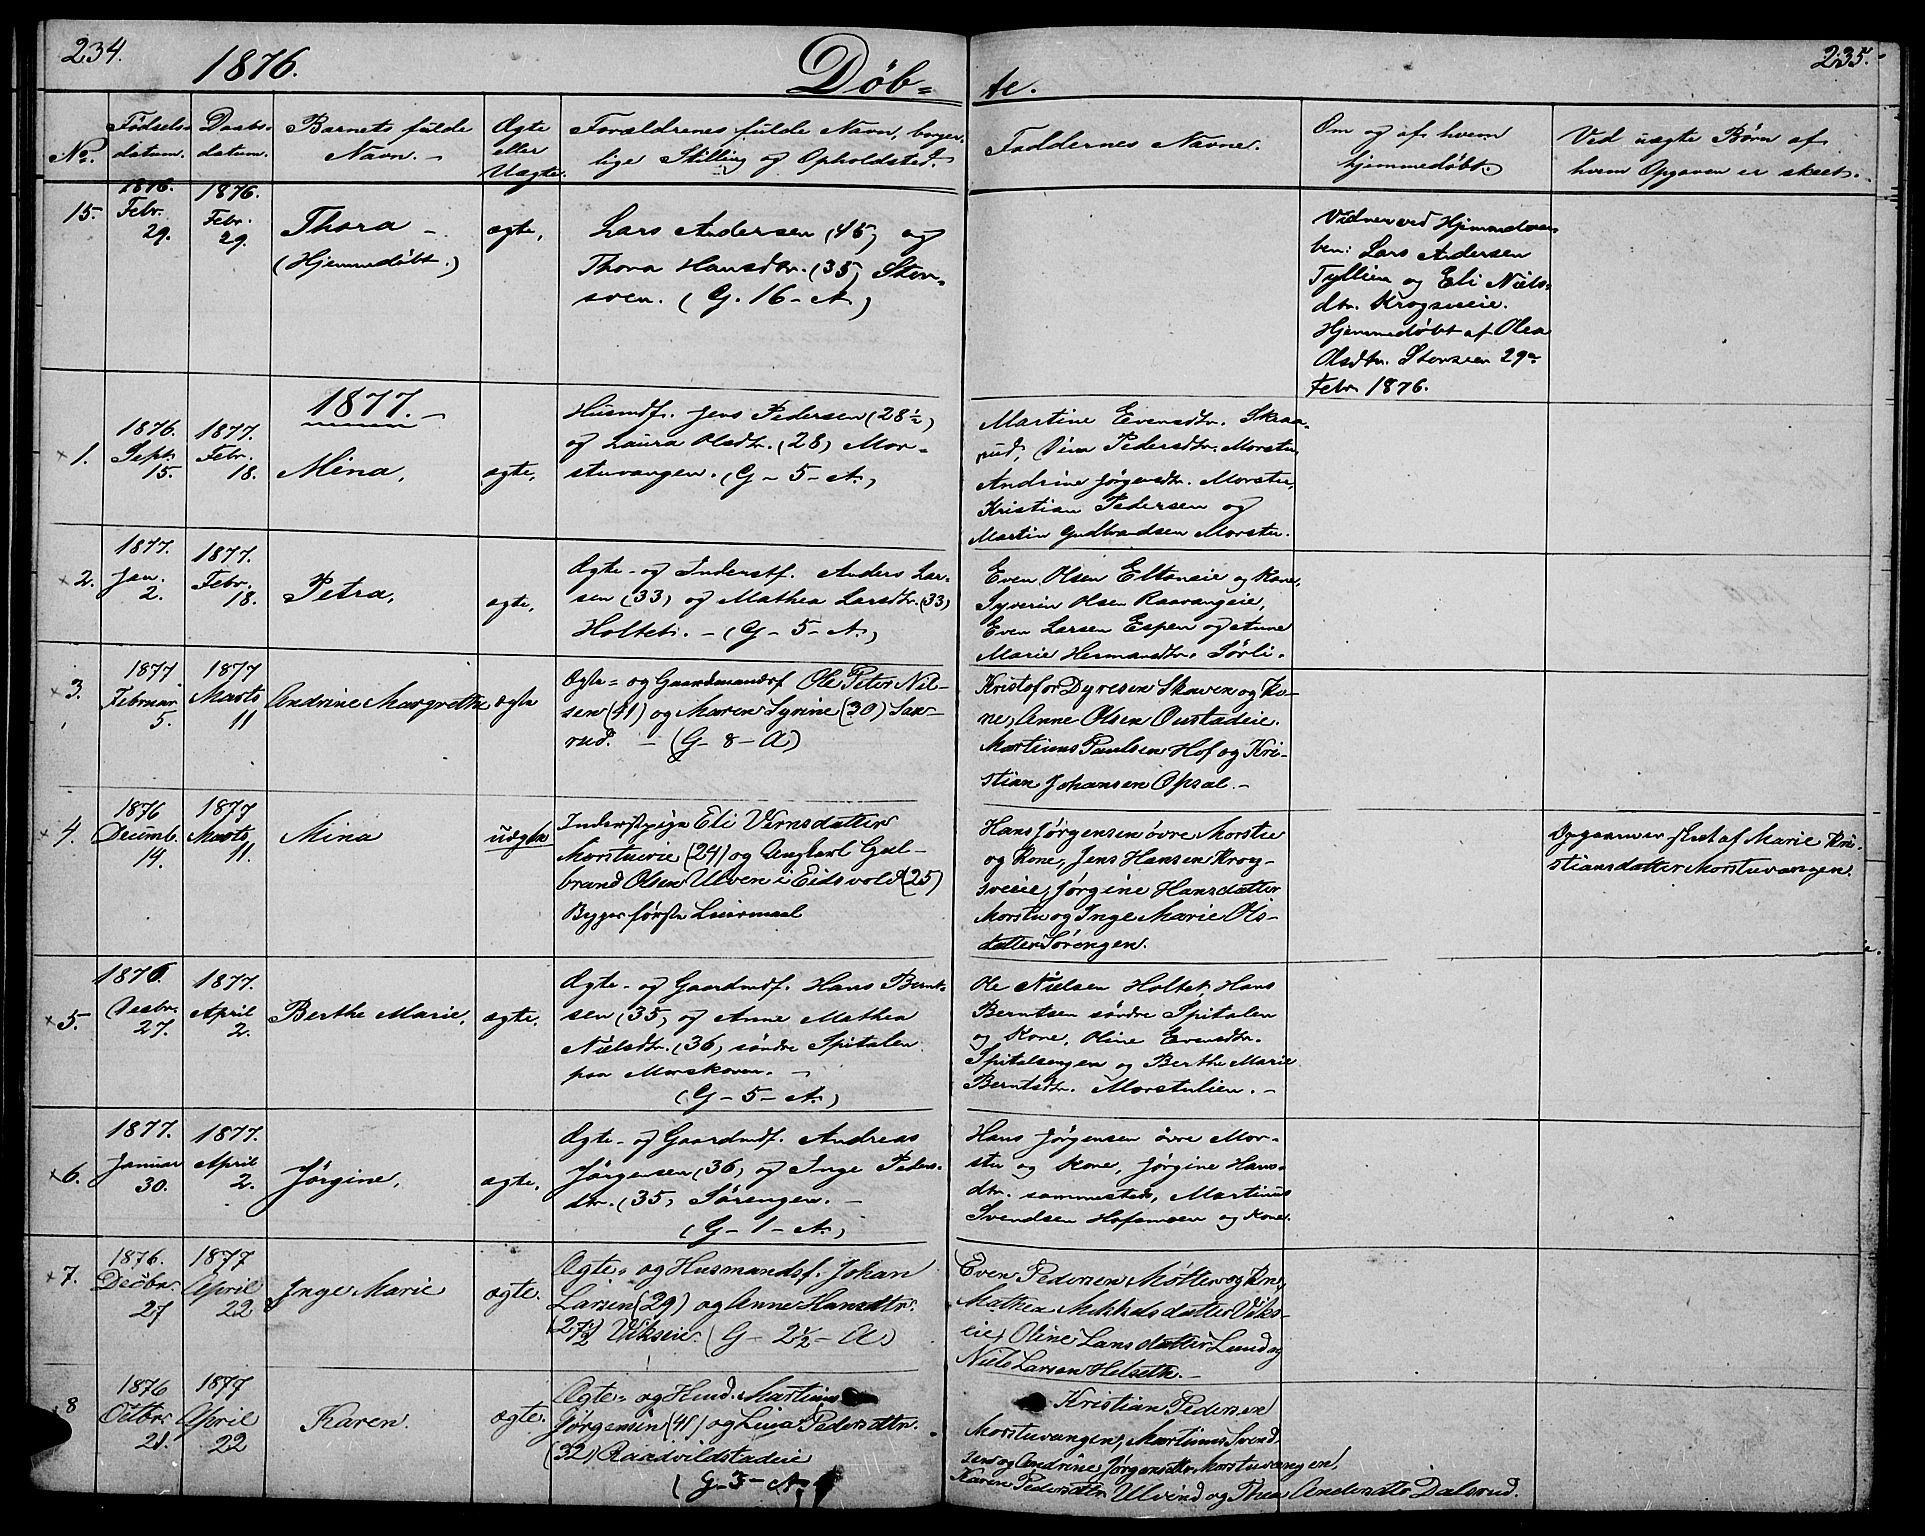 234.
1876.
Døb-
te.
235.
No.
Fødsels-
datum.
Daabs-
datum.
Barnets fulde
Navn. -
Ægte
eller
Uægte.
Forældrenes fulde Navn, borger-
lige Stilling og Opholdsted.
Faddernes Navne.
Om og af hvem
hjemmedøbt.
Ved uægte Børn af
hvem Opgaven er skeet.
15.
1876.
Febr.
29.
1876.
Febr.
29.
Thora -
(Hjemmedøbt.)
ægte,
Lars Andersen (45) og
Thora Hansdtr. (35) Stor-
soen. (G. 16 - A)
Vidner ved Hjemmedaa-
ben: Lars Andersen
Tyllien og Eli Niels-
dtr. Krogsveie.
Hjemmedøbt af Olea
Olsdtr. Storsoen 29de
Febr. 1876.
1877. -
x 1.
1876.
Sept.
15.
1877.
Febr.
18.
Mina,
ægte,
Husmdf. Jens Pedersen (28½)
og Laura Olsdtr. (28) Mor-
stuvangen. (G - 5 - A)
Martine Evensdtr. Skraa-
rud, Pedersdtr. Morstu,
Andrine Jørgensdtr. Morstu,
Kristian Pedersen og
Martin Gudbrandsen Morstu.
x 2.
1877.
Jan.
2.
1877.
Febr.
18.
Petra,
ægte,
Ægte- og Inderstf. Anders Lar-
sen (33) og Mathea Larsdtr. (33)
Holtet. - (G - 5 - A)
Even Olsen Eltoneie og Kone,
Syverin Olsen Raavangeie,
Even Larsen Espen og Anne
Marie Hermandtr. Sørli.
x 3.
1877
Februar
5.
1877
Marts
11
Andrine Margrethe
ægte
Ægte- og Gaardmandsf. Ole Peter Nil-
sen (41) og Maren Syrine (30) Sax-
rud. - (G - 8 - A)
Kristofor Dyresen Skaven og Ko-
ne, Anne Olsen Oustadeie.
Martinus Paulsen Hof og Kri-
stian Johansen Opsal. -
x 4.
1876
Decemb.
14.
1877
Marts
11.
Mina
uægte
Inderstpige Eli Vernsdatter
Morstueie (24) og Ungkarl Gul-
brand Olsen Ulven i Eidsvold (25)
Begges første Leiermaal
Hans Jørgensen øvre Morstu
og Kone, Jens Hansen Krog-
sveeie, Jørgine Hansdatter
Morstu og Inge Marie Ols-
datter Sørengen.
Opgaven er skeet af Marie Kri-
stiansdatter Morstuvangen.
x 5.
1876.
Decbr.
27.
1877.
April
2.
Berthe Marie,
ægte.
Ægte- og Gaardmdf. Hans Bernt-
sen (35) og Anne Mathea
Nielsdtr. (36) søndre Spitalen
paa Morskoven. -
(G - 5 - A)
Ole Nielsen Holtet, Hans
Berntsen søndre Spitalen
og Kone, Oline Evensdtr.
Spitalsengen og Berthe Marie
Berntsdtr. Morstulien. -
x 6.
1877.
Januar
30.
1877.
April
2.
Jørgine,
ægte.
Ægte- og Gaardmdf. Andreas
Jørgensen (36) og Inge Peders-
dtr. (35) Sørengen. -
(G - 1 - A)
Hans Jørgensen øvre Mor-
stu og Kone, Jørgine Hans-
dtr. sammesteds, Martinus
Svendsen Hofsmoen og Kone.
x 7.
1876.
Decbr.
27
1877
April
22
Inge Marie
ægte.
Ægte- og Husmandsf. Johan
Larsen (29) og Anne Hansdtr.
(27½) Vikseie. (G - 2½ - A)
Even Pedersen Møtter og Kone,
Mathea Mikkelsdatter Viks-
eie, Oline Larsdatter Lund og
Niels Larsen Helseth. -
8
1876
Octbr.
21.
1877
April
22
Karen.
ægte.
Ægte- og Hmd. Martinus
Jørgensen (41) og Lina Pedersdtr.
(32) Raadvildstadeie
(G - 3 - A)
Kristian Pedersen
Morstuvangen, Martinus Svend-
sen og Andrine Jørgensdtr. Morstuvangen,
Karen Pedersdtr. Ulvind og Thea Andersdtr Dalsrud.